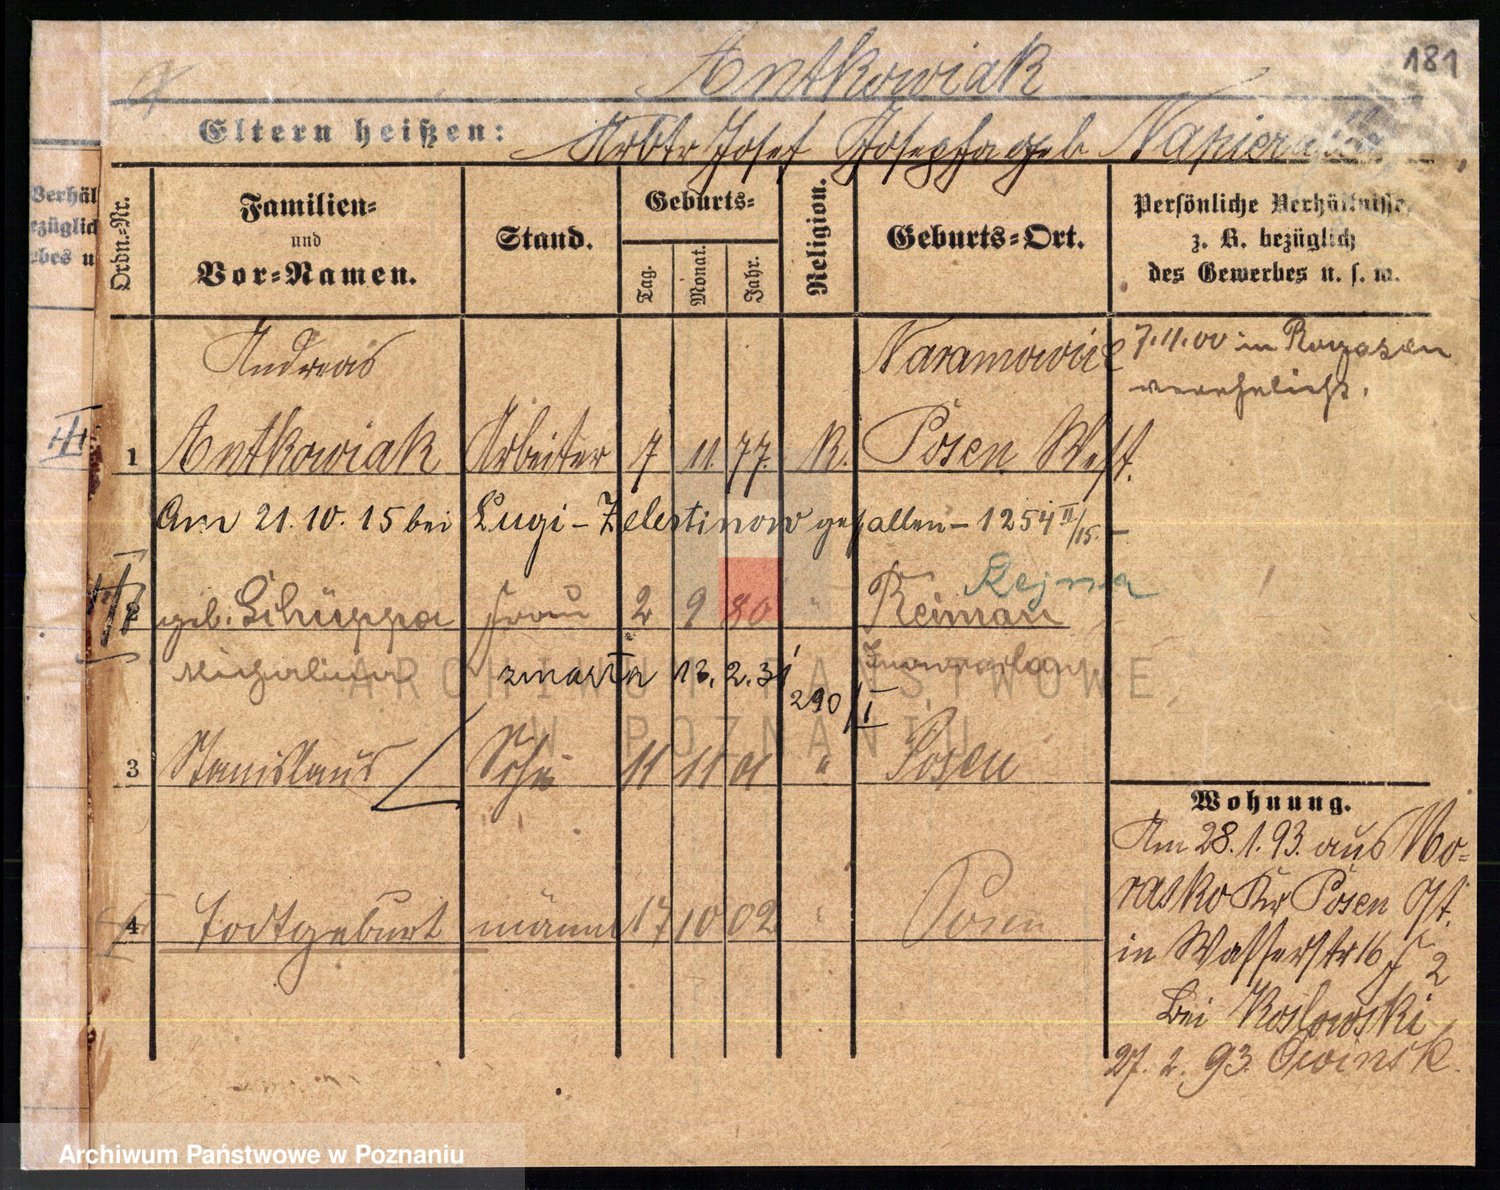 181
Antkowiak
Eltern heißen: Arbtr Josef Josepha geb
Verhäl
ezüglich
ebes u
Ordn.-Nr.
Familien-
und
Vor-Namen.
Stand.
Geburts-
Tag.
Monat.
Jahr.
Religion.
Geburts-Ort.
Persönliche Verhältnisse,
z. B. bezüglich
des Gewerbes u. s. w.
Andreas
Naramowice
7.11.00 in Rogasen
verehelicht.
1 Antkowiak Arbeiter 7 11. 77. K. Posen West.
Am 21.10.15 bei Lugi-Zelestinow gefallen – 1254 II/15. –
Rejna
2 geb. Schüppa Frau 2 9 80 " Reiman
Michalina zmarła 13. 2. 31
290/I
3 Stanislaus Sohn 11 11 01 " Posen
Wohnung.
Am 28.1.93. aus Mo-
rasko Kr Posen Ost.
4 Todtgeburt männl 17 10 02 " Posen
in Wasserstr 16 2
bei Koslowski
27. 2. 93. Owinsk.
ARCHIWUM PAŃSTWOWE
W POZNANIU
Archiwum Państwowe w Poznaniu